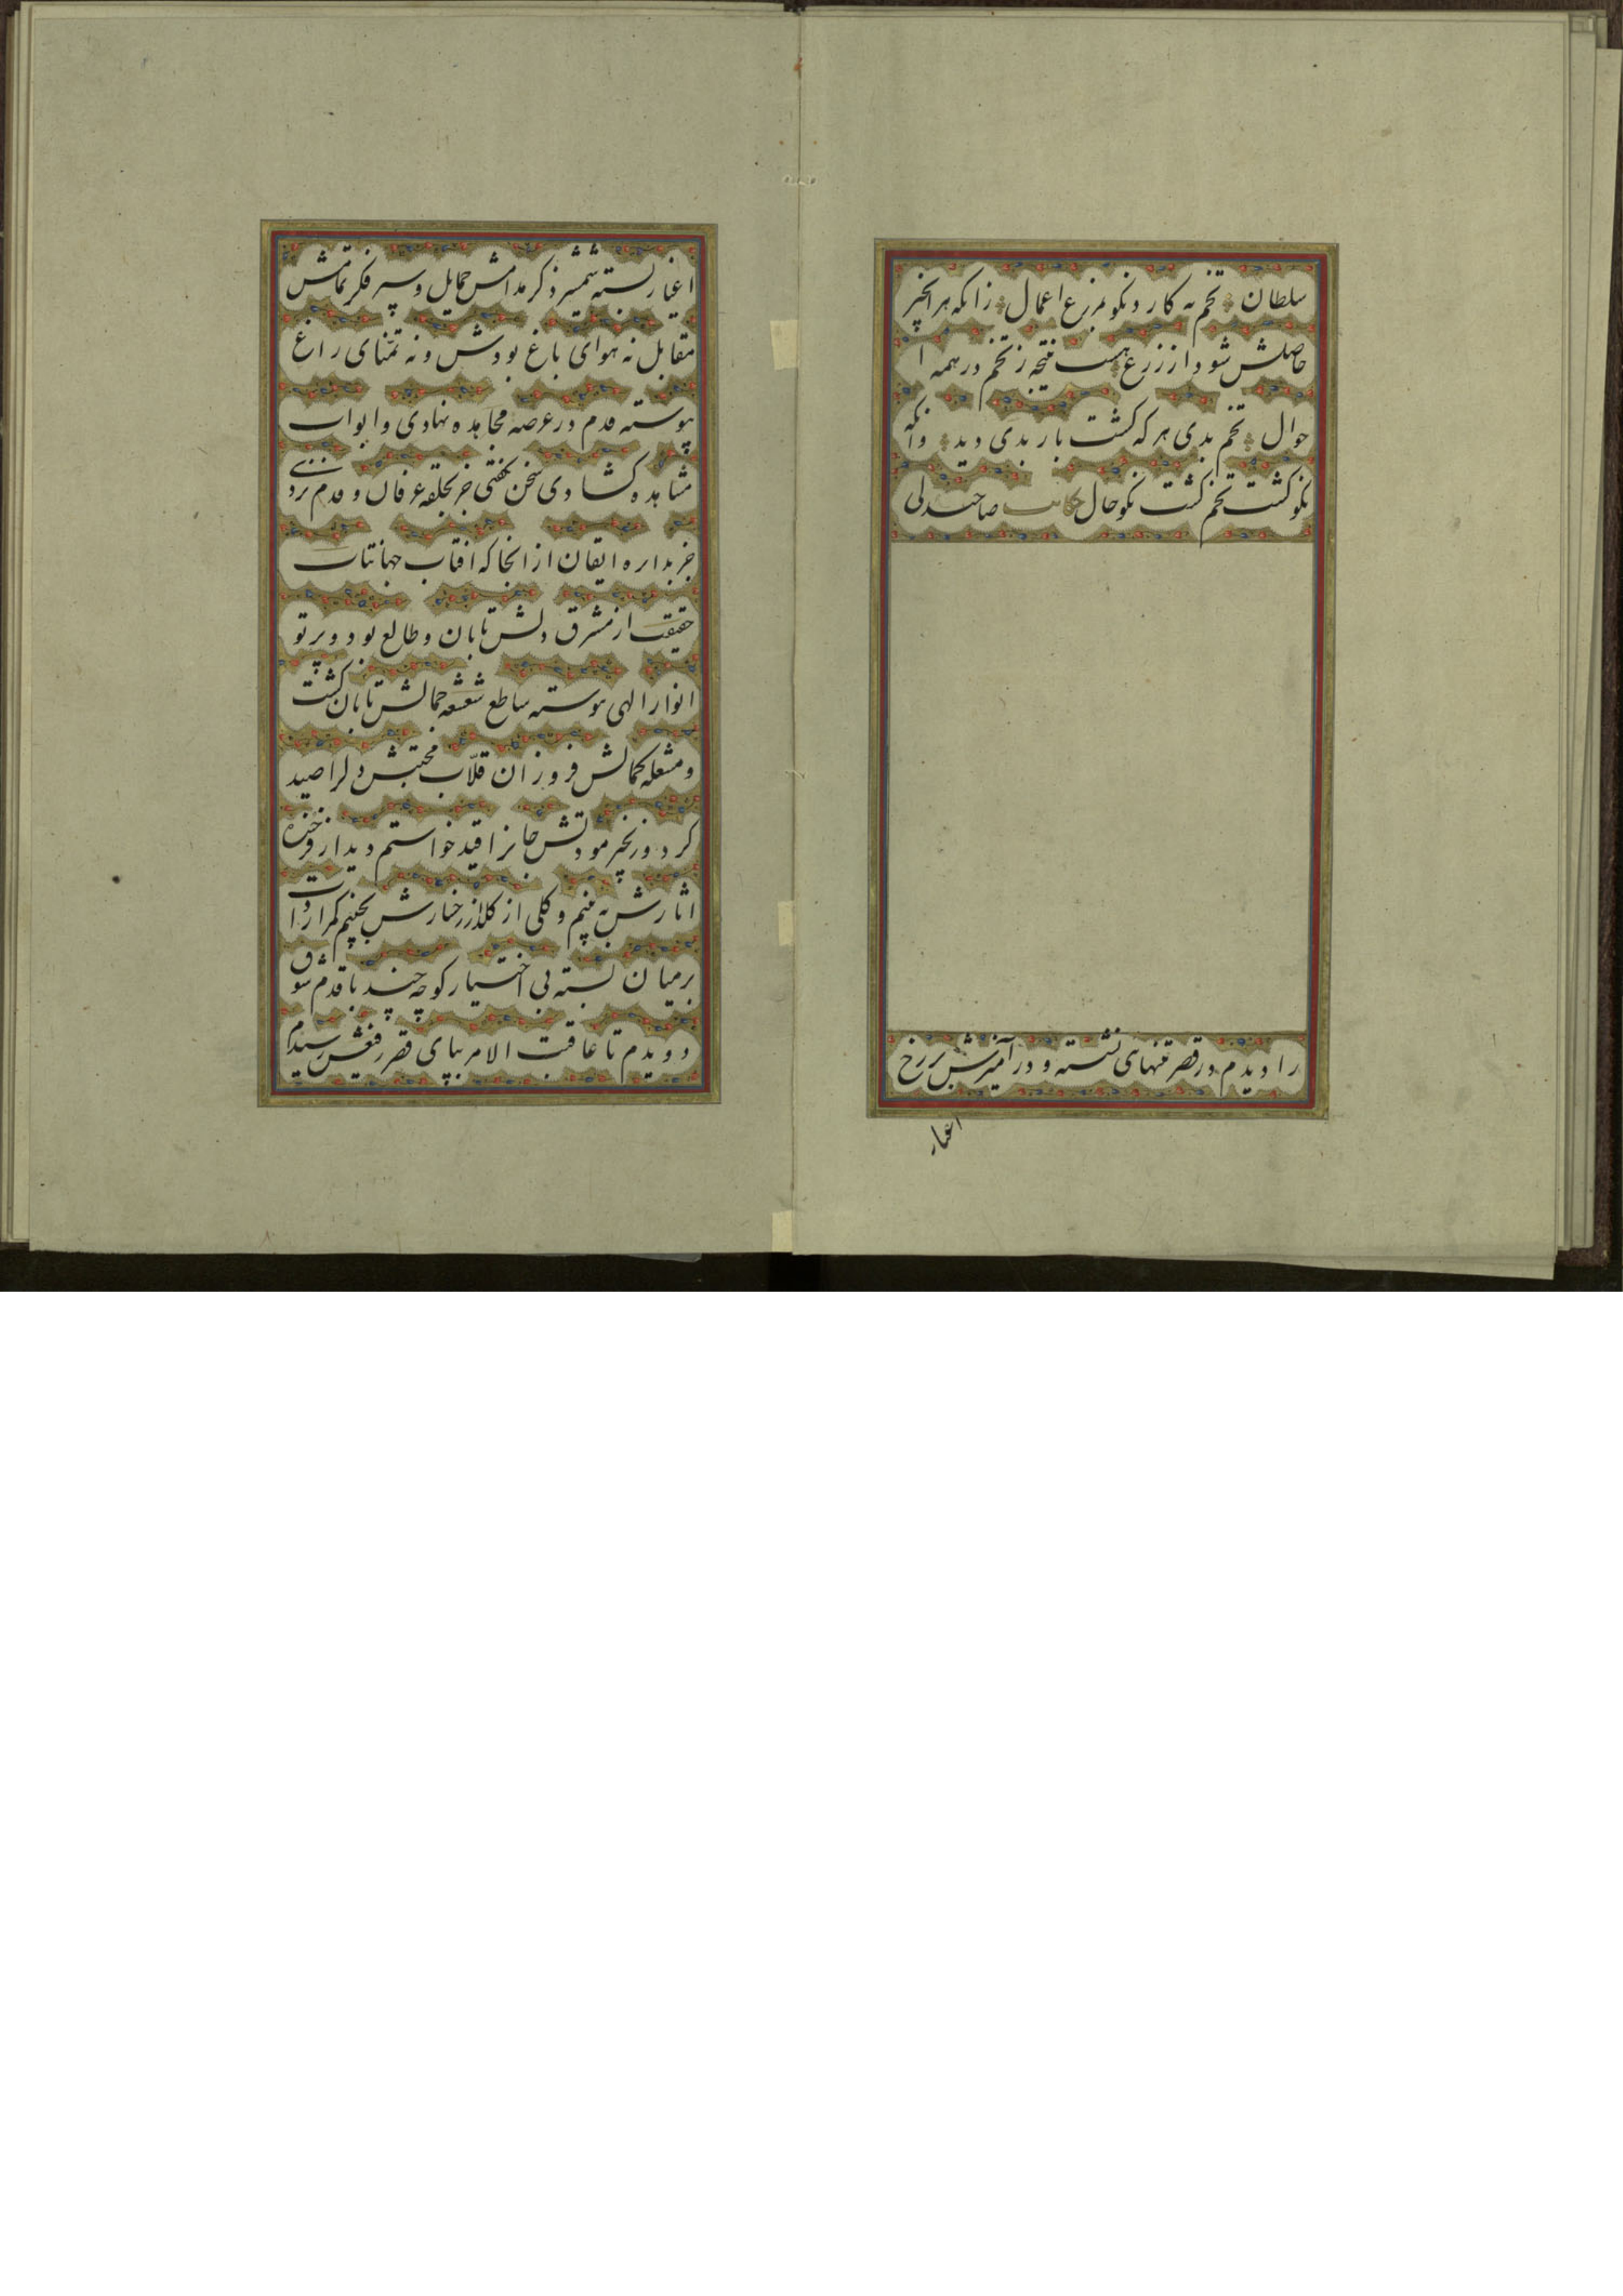 سلطان تخم به کار و نکو مزرع اعمال زانکه هر انچیز
حاصلش شود از زرع هست نتیجه ز تخم در همه ا
حوال تخم بدی هر که کشت بار بدی دید وانکه
نکو کشت تخم کشت نکو حال حکایت صاحبدلی
را دیدم در قصر تنهای نشسته و در آمیزش بر رخ
اغیار
اغیار بسته شمشیر ذکر مدامش حمایل و سپر فکر تمامش
مقابل نه هوای باغ بودش و نه تمنای راغ
پیوسته قدم در عرصه مجاهده نهادی و ابواب
مشاهده کشادی سخن نکفتی جز بحلقه عرفان و قدم نزدی
جز بداره ایقان از انجا که افتاب جهانتاب
حقیقت از مشرق دلش تابان و طالع بود و پرتو
انوار الهی پیوسته ساطع شعشعه جمالش تابان کشت
و مشعله کمالش فروزان قلّاب محبتش دلرا صید
کرد و زنجیر مودتش جانرا قید خواستم دیدار فرخنده
اثارش به بینم و کلی از کلزار رخسارش بچینم کمر ارادت
بر میان بسته بی اختیار کوچه چند با قدم شوق
دویدم تا عاقبت الامر بپای قصر رفیعش رسیدم